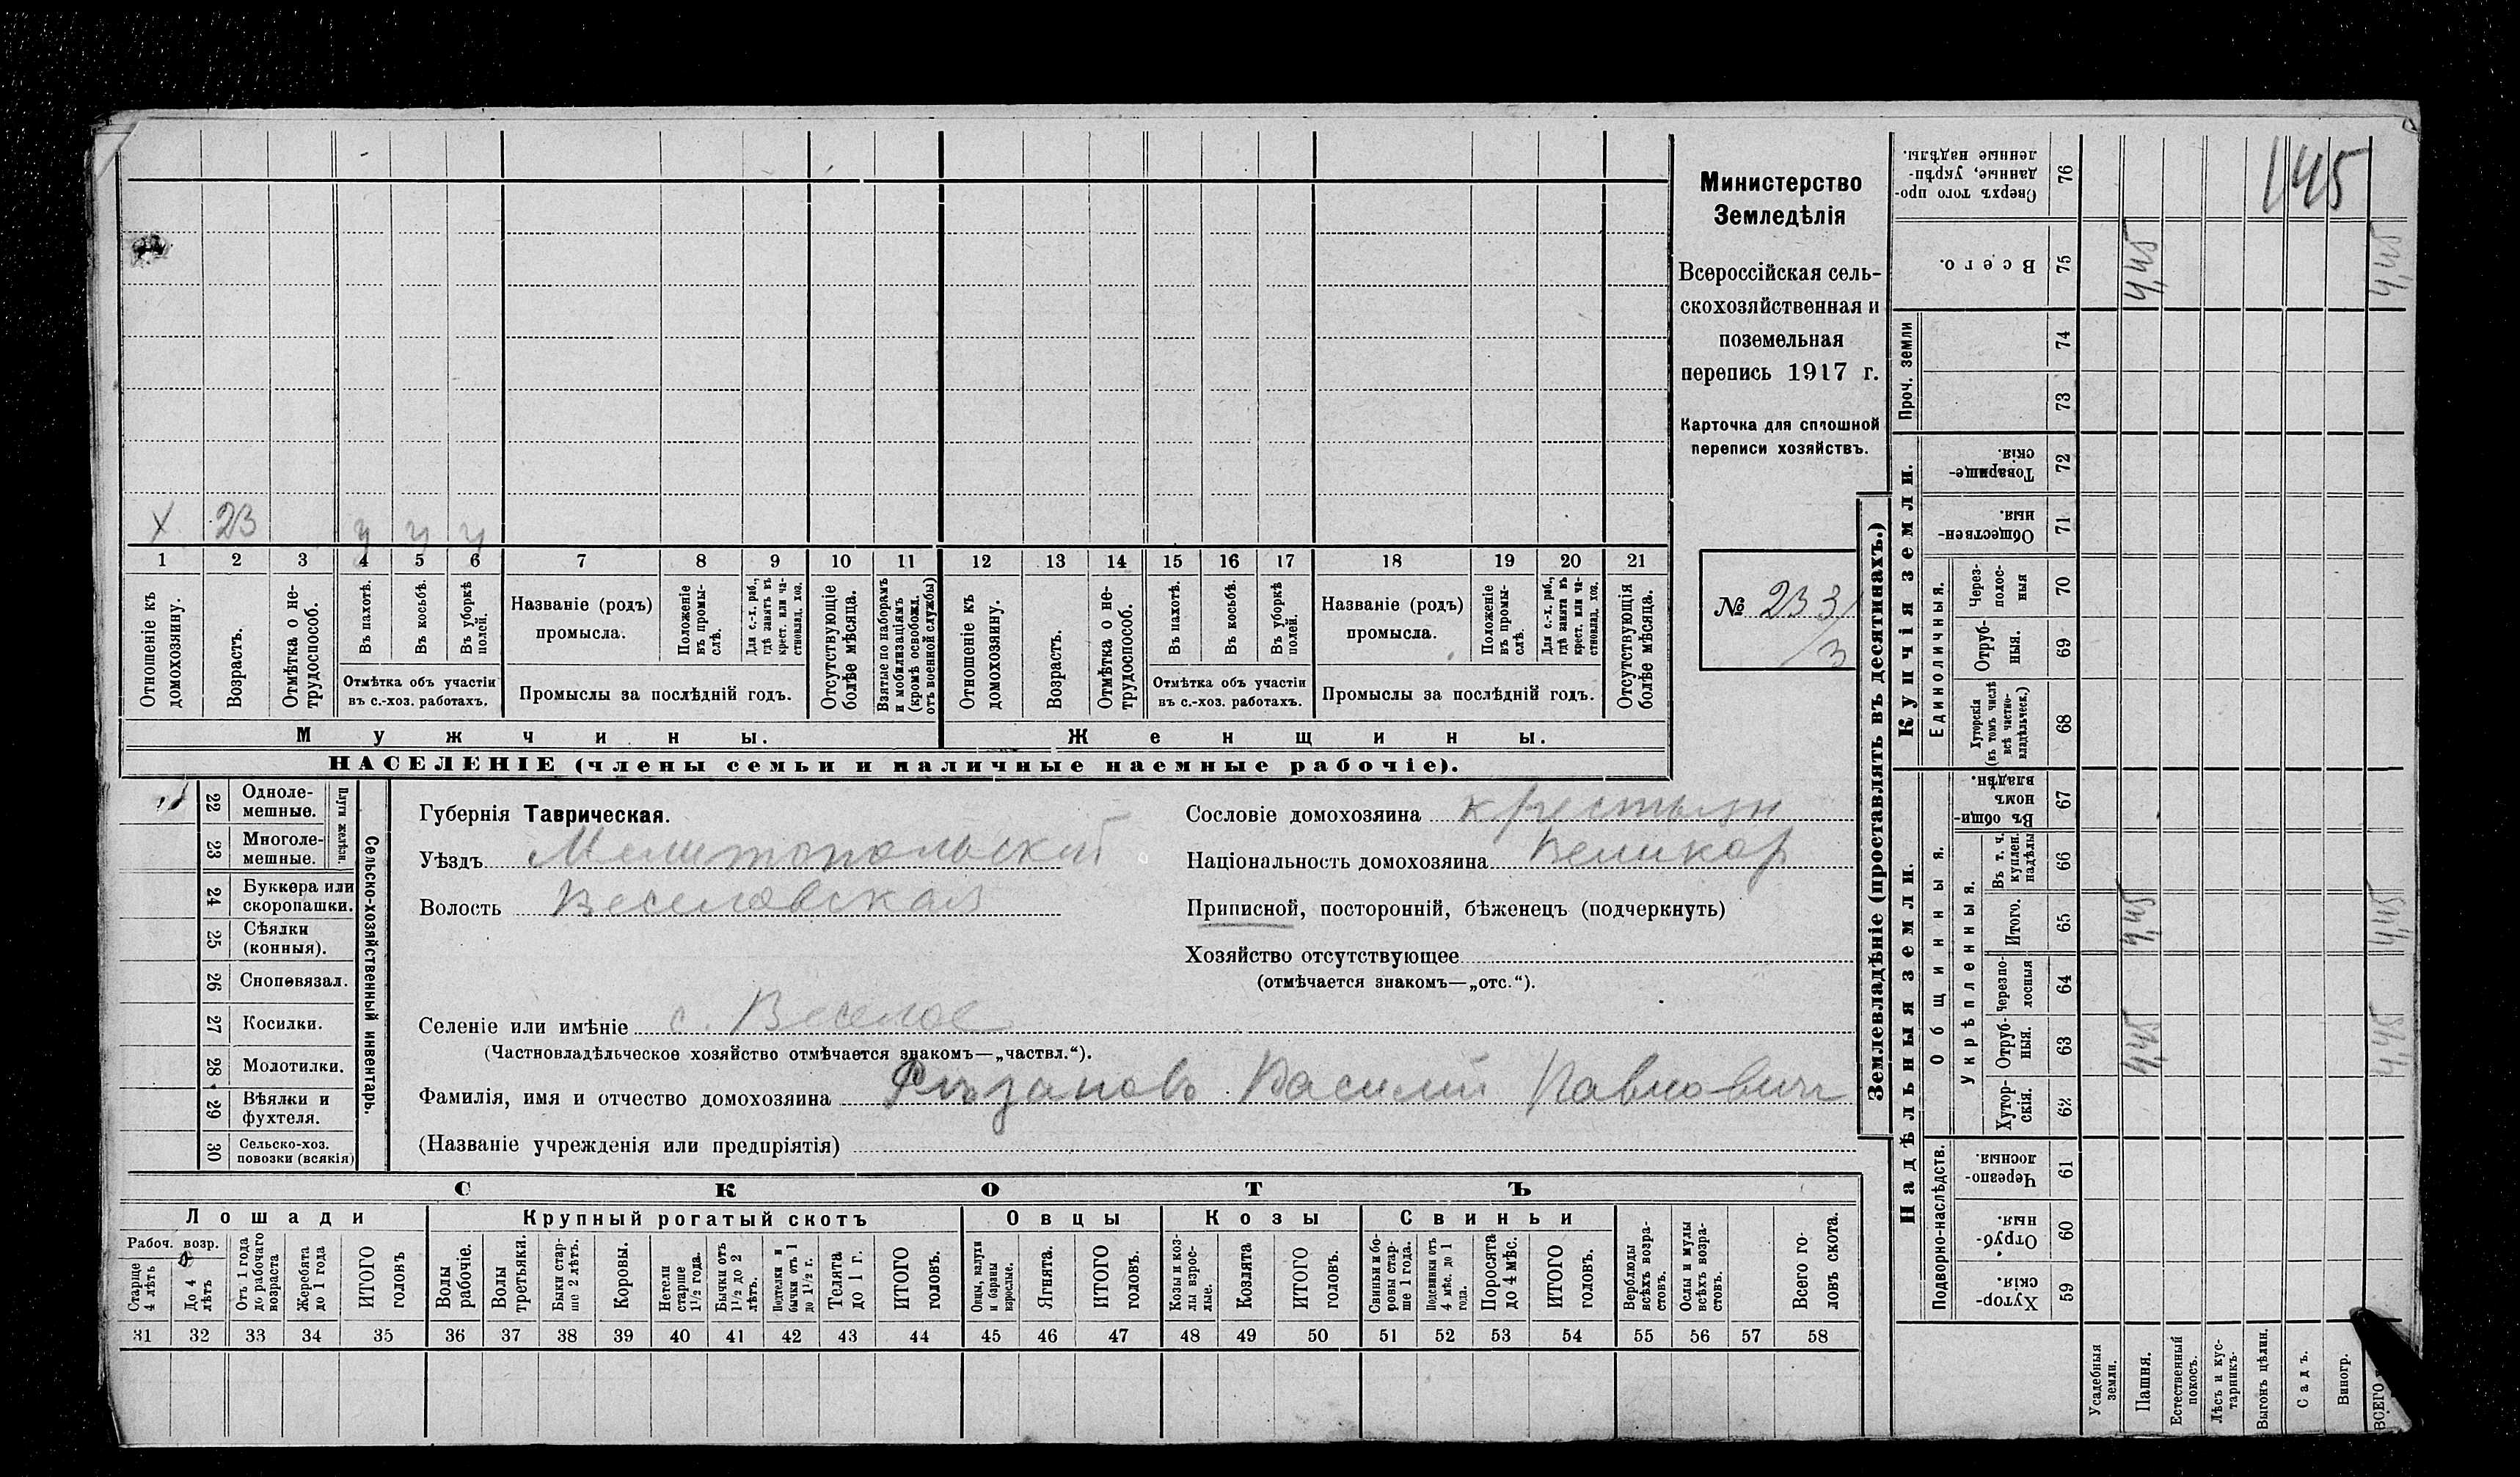 X 23 у у у
1 2 3 4 5 6 7 8 9 10 11 12 13 14 15 16 17 18 19 20 21
Отношеніе къ домохозяину.
Возрастъ.
Отмѣтка о не-трудоспособ.
Въ пахотѣ.
Въ косьбѣ.
Въ уборкѣ полей.
Отмѣтка объ участіи
въ с.-хоз. работахъ.
Названіе (родъ)
промысла.
Положеніе въ промы-слѣ.
Для с.-х. раб., гдѣ занятъ въ крест. или ча-стновлад. хоз.
Промыслы за послѣдній годъ.
Отсутствующіе болѣе мѣсяца.
Взятые по наборамъ и мобилизаціямъ (кромѣ освобожд. отъ военной службы)
Отношеніе къ домохозяину.
Возрастъ.
Отмѣтка о не-трудоспособ.
Въ пахотѣ.
Въ косьбѣ.
Въ уборкѣ полей.
Отмѣтка объ участіи
въ с.-хоз. работахъ.
Названіе (родъ)
промысла.
Положеніе въ промы-слѣ.
Для с.-х. раб., гдѣ занята въ крест. или ча-стновлад. хоз.
Промыслы за послѣдній годъ.
Отсутствующія болѣе мѣсяца.
Мужчины.
Женщины.
НАСЕЛЕНІЕ (члены семьи и наличные наемные рабочіе).
Министерство
Земледѣлія
Всероссійская сель-
скохозяйственная и
поземельная
перепись 1917 г.
Карточка для сплошной
переписи хозяйствъ.
№ 233/
3
22 Одноле-мешные.
23 Многоле-мешные.
Плуги желѣзн.
24 Буккера или скоропашки.
25 Сѣялки (конныя).
26 Сноповязал.
27 Косилки.
28 Молотилки.
29 Вѣялки и фухтеля.
30 Сельско-хоз. повозки (всякія)
Сельско-хозяйственный инвентарь.
Губернія Таврическая.
Уѣздъ Мелитопольский
Волость Веселовская
Сословіе домохозяина крестьян
Національность домохозяина Великор
Приписной, посторонній, бѣженецъ (подчеркнуть)
Хозяйство отсутствующее
(отмѣчается знакомъ—„отс.“).
Селеніе или имѣніе с. Веселое
(Частновладѣльческое хозяйство отмѣчается знакомъ—„частвл.“).
Фамилія, имя и отчество домохозяина Рызановъ Василий Павлович
(Названіе учрежденія или предпріятія)
СКОТЪ
Лошади
Крупный рогатый скотъ
Овцы
Козы
Свиньи
Рабоч. возр.
Старше 4 лѣтъ
До 4 лѣтъ
Отъ 1 года до рабочаго возраста
Жеребята до 1 года
ИТОГО головъ
Волы рабочіе.
Волы третьяки.
Быки стар-ше 2 лѣтъ.
Коровы.
Нетели старше 1½ года.
Бычки отъ 1½ до 2 лѣтъ.
Подтелки и бычки отъ 1 до 1½ г.
Телята до 1 г.
ИТОГО головъ.
Овцы, валухи и бараны взрослые.
Ягнята.
ИТОГО головъ.
Козы и коз-лы взрос-лые.
Козлята
ИТОГО головъ.
Свиньи и бо-ровы стар-ше 1 года.
Подсвинки отъ 4 мѣс. до 1 года.
Поросята до 4 мѣс.
ИТОГО головъ.
Верблюды всѣхъ возра-стовъ.
Ослы и мулы всѣхъ возра-стовъ.
Всего го-ловъ скота.
31 32 33 34 35 36 37 38 39 40 41 42 43 44 45 46 47 48 49 50 51 52 53 54 55 56 57 58
Землевладѣніе (проставлять въ десятинахъ.)
145
Сверхъ того про-данные, укрѣп-ленные надѣлы. 76
Всего. 75 4,45 4,45
Проч. земли 74
73
Купчія земли.
Товарище-скія. 72
Обществен-ныя. 71
Единоличныя.
Через-полос-ныя 70
Отруб-ныя. 69
Хуторскія (въ томъ числѣ всѣ частно-владѣльческ.) 68
Надѣльныя земли.
Общинныя.
Въ общи-номъ владѣн. 67
Укрѣпленныя.
Въ т. ч. куплен. надѣлы 66
Итого. 65 4,45 4,45
Черезпо-лосныя 64
Отруб-ныя. 63 4,45 4,45
Хутор-скія. 62
Подворно-наслѣдств.
Черезпо-лосныя. 61
Отруб-ныя. 60
Хутор-скія. 59
Усадебныя земли.
Пашня.
Естественный покосъ.
Лѣсъ и кус-тарникъ.
Выгонъ цѣлин.
Садъ.
Виногр.
ВСЕГО